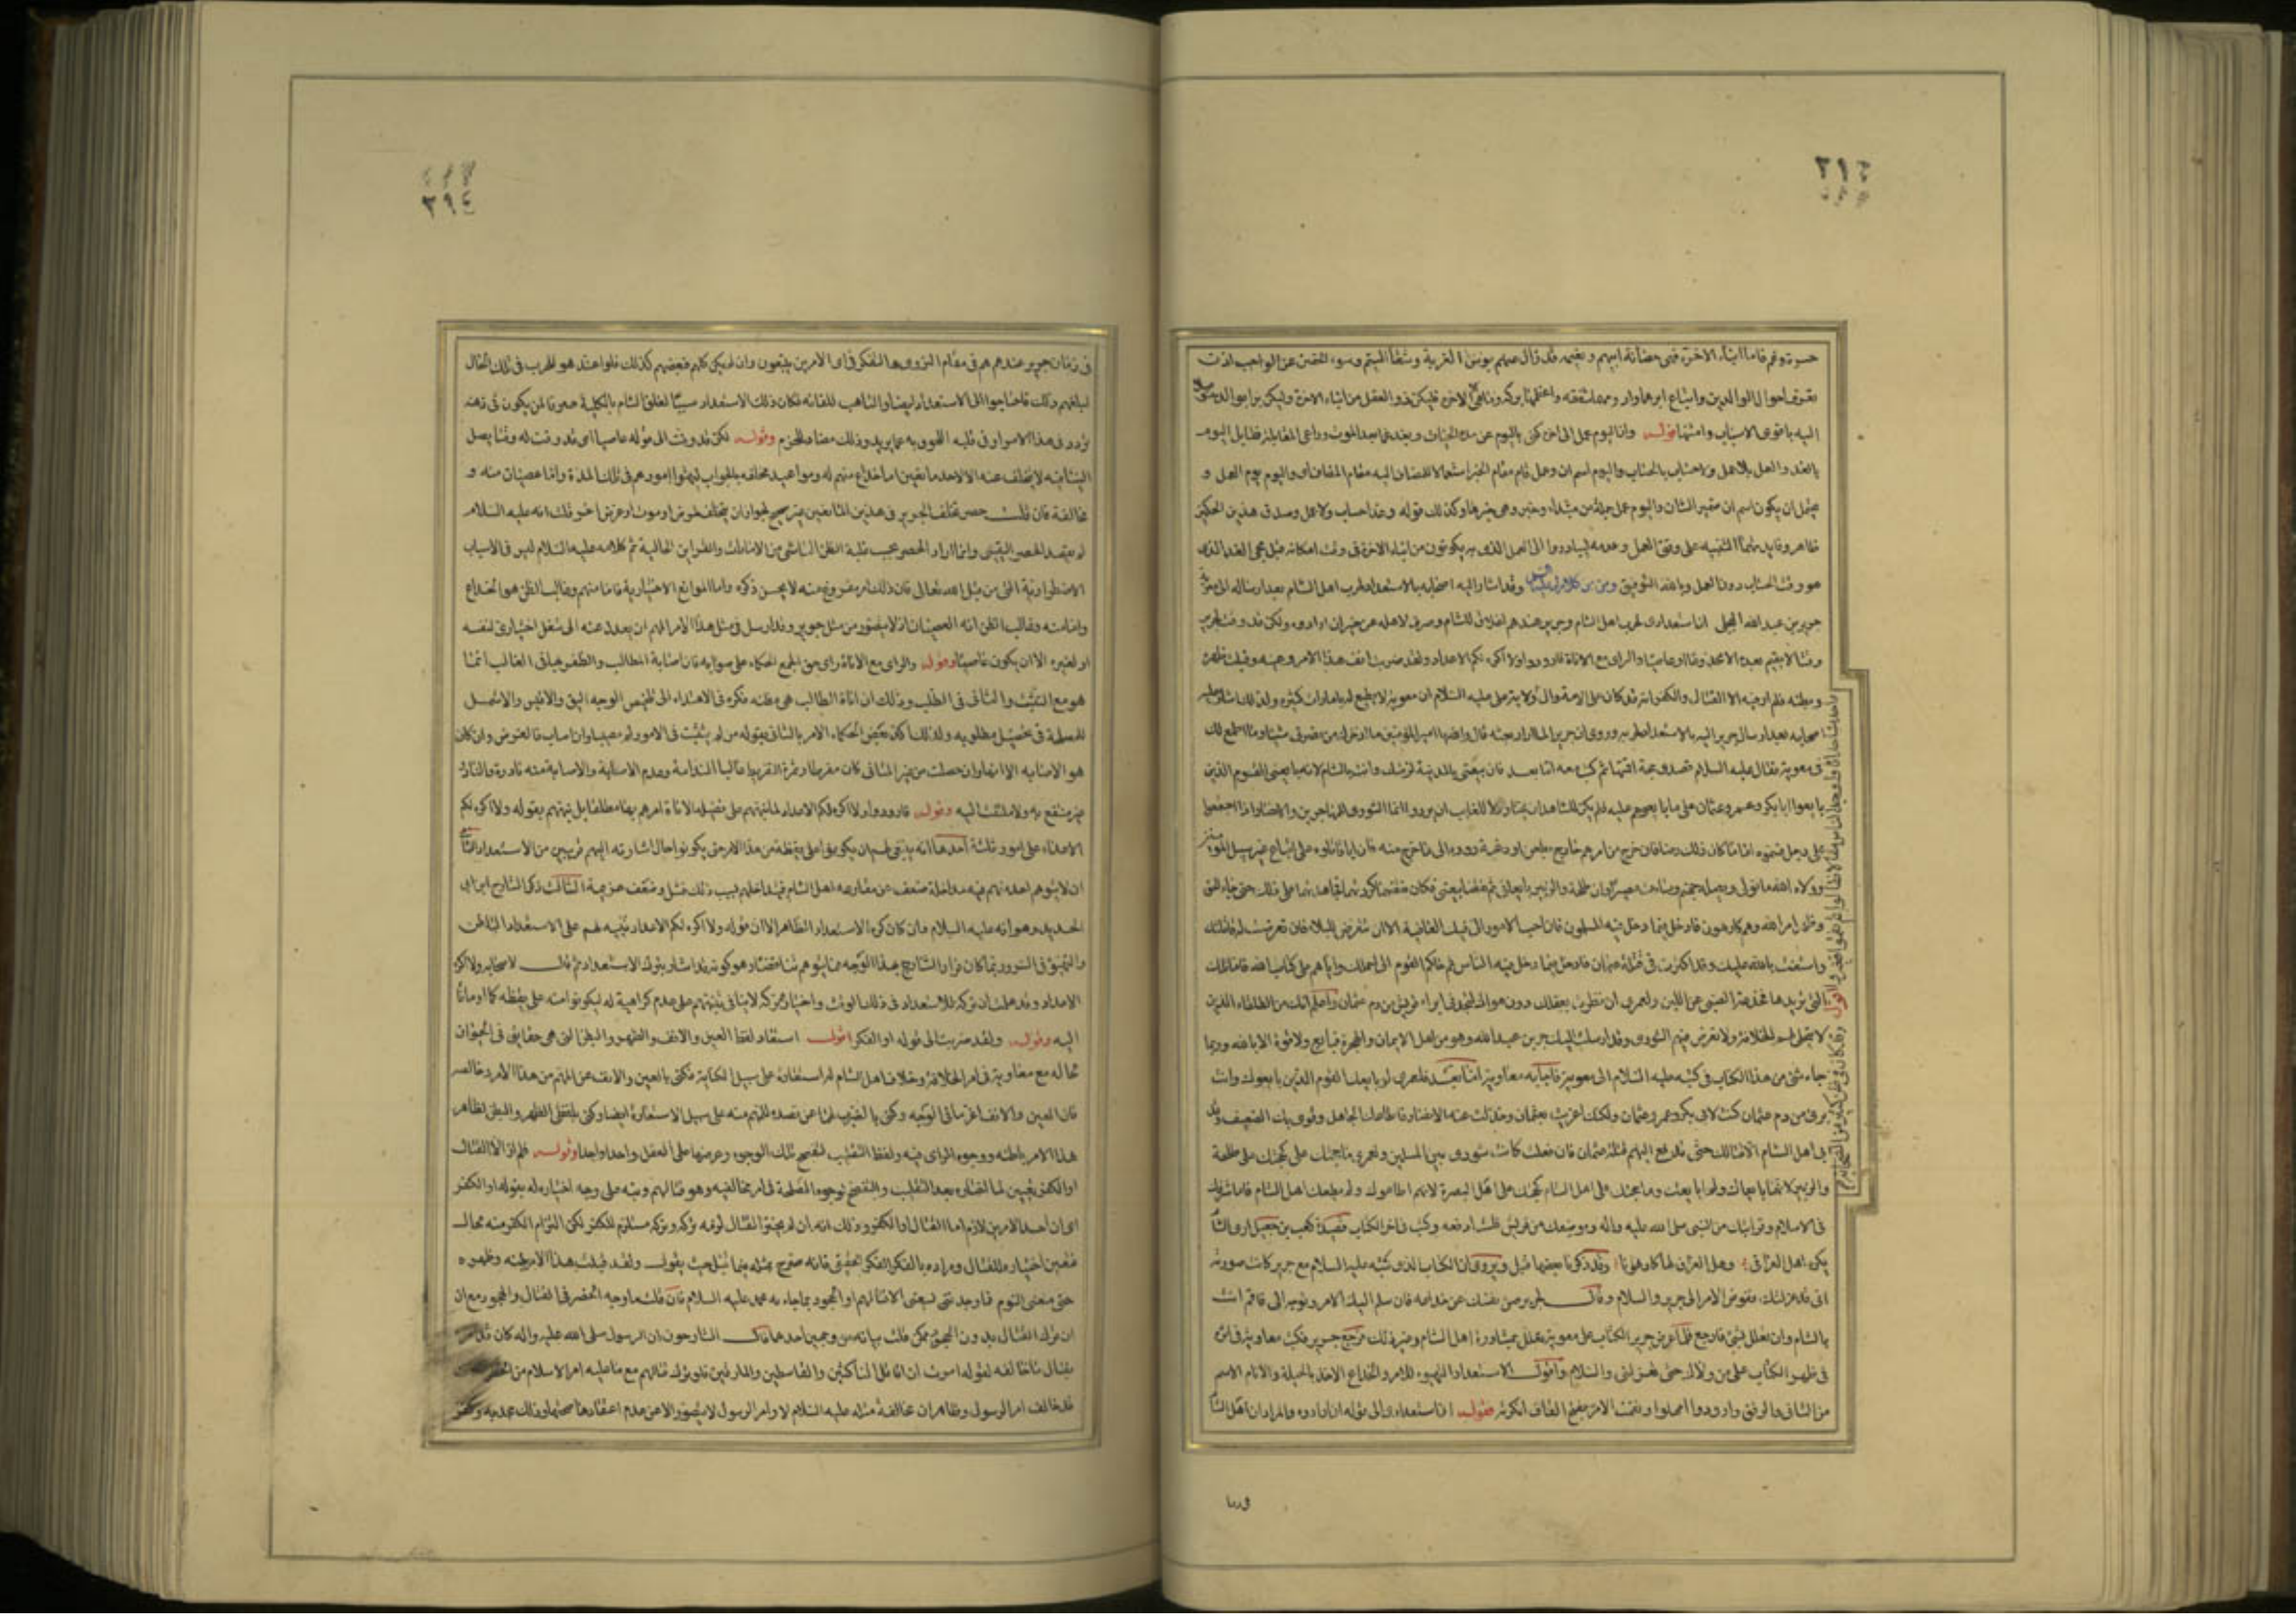 حسرة وغم فاما ابناء الاخرة ففى حضانة ابيهم ونعيمه قد زال عنهم بؤس الغربة وشقاء اليتم وسوء الحضن عن الواجب اذن
تعرف احوال الوالدين واتباع ابرهما وادومهما شفقة واعظمهما بركة وما هى الا الاخرة فليكن ذو العقل من ابناء الاخرة وليكن برا بوالده
اليه باقوى الاسباب وامتنها قوله وان اليوم عمل الى اخره كنى باليوم عن مدة الحياة وبغد عما بعد الموت وراعى المقابلة فقابل اليوم
بالغد والعمل بلا عمل ولا حساب بالحساب واليوم اسم ان وعمل قام مقام الخبر استعمالا للمضاف اليه مقام المضاف اى واليوم يوم العمل و
يحتمل ان يكون اسم ان ضمير الشان واليوم عمل جملة من مبتداء وخبر وهى خبرها وكذلك قوله وغدا حساب ولا عمل وصدق هذين الحكمين
ظاهر وفايدتهما التنبيه على وقت العمل وعدمه ليبادروا الى العمل الذى به يكونون من ابناء الاخرة فى وقت امكانه قبل مجى الغد الذى
هو وقت الحساب دون العمل وبالله التوفيق ومن كلام له عليه السلام وقد اشار اليه اصحابه بالاستعداد لحرب اهل الشام بعد ارساله الى معوية
جرير بن عبد الله البجلى ان استعدادى لحرب اهل الشام وجرير عندهم اغلاق للشام وصرف لاهله عن خير ان ارادوه ولكن قد وقت لجرير
وقتا لا يقيم بعده الا مخدوعا او عاصيا والراى مع الاناة فارودوا ولا اكره لكم الاعداد ولقد ضربت انف هذا الامر وعينه وقلبت ظهره
وبطنه فلم ار فيه الا القتال والكفر انه قد كان على الامة وال
اصحابه بعد ارسال جرير اليه بالاستعداد لحربه وروى ان جريرا لما اراد بعثه قال والله يا امير المؤمنين ما ادخرك من نصرتى شيئا وما اطمع لك
فى معوية فقال عليه السلام قصدى حجة اقمتها ثم كتب معه اما بعد فان بيعتى بالمدينة لزمتك وانت بالشام لانه بايعنى القوم الذين
بايعوا ابا بكر وعمر وعثمان على ما بايعوهم عليه فلم يكن للشاهد ان يختار ولا للغايب ان يرد وانما الشورى للمهاجرين والانصار اذا اجتمعوا
على رجل فسموه اماما كان ذلك رضا فان خرج من امرهم خارج بطعن او رغبة ردوه الى ما خرج منه فان ابا قاتلوه على اتباع غير سبيل المؤمنين
وولاه الله ما تولى ويصله جهنم وساءت مصيرا وان طلحة والزبير بايعانى ثم نقضا بيعتى فكان نقضهما كردتهما فجاهدتهما على ذلك حتى جاء الحق
وظهر امر الله وهم كارهون فادخل فيما دخل فيه المسلمون فان احب الامور الى فيك العافية الا ان تتعرض للبلاء فان تعرضت له قاتلتك
واستعنت بالله عليك وقد اكثرت فى قتلة عثمان فادخل فيما دخل فيه الناس ثم حاكم القوم الى احملك واياهم على كتاب الله فاما تلك
التى تريدها فخدعة الصبى عن اللبن ولعمرى ان نظرت بعقلك دون هواك لتجدنى ابراء قريش من دم عثمان واعلم انك من الطلقاء الذين
لا تحل لهم الخلافة ولا تعرض فيهم الشورى وقد ارسلت اليك جرير بن عبد الله وهو من اهل الايمان والهجرة فبايع ولا قوة الا بالله وربما
جاء شى من هذا الكتاب فى كتبه عليه السلام الى معوية فاجابه معاوية اما بعد فلعمرى لو بايعك القوم الذين بايعوك وانت
برى من دم عثمان كنت كابى بكر وعمر وعثمان ولكنك اغريت بعثمان وخذلت عنه الانصار فاطاعك الجاهل وقوى بك الضعيف وقد
ابى اهل الشام الا قتالك حتى تدفع اليهم قتلة عثمان فان فعلت كانت شورى بين المسلمين ولعمرى ما حجتك على كحجتك على طلحة
والزبير لانهما بايعاك ولم ابايعك وما حجتك على اهل الشام كحجتك على اهل البصرة لانهم اطاعوك ولم يطعك اهل الشام فاما شرفك
فى الاسلام وقرابتك من النبى صلى الله عليه واله وموضعك من قريش فلست ادفعه وكتب فى اخر الكتاب قصيدة كعب بن جعيل ارى الشام
يكره اهل العراق واهل العراق لها كارهونا وقد ذكرنا بعضها قبل ويروى ان الكتاب الذى كتبه عليه السلام مع جرير كانت صورته
انى قد عزلتك ففوض الامر الى جرير والسلام وقال لجرير صن نفسك عن خداعه فان سلم اليك الامر وتوجه الى فاقم انت
بالشام وان تعلل بشى فارجع فلما عرض جرير الكتاب على معوية تعلل بمشاورة اهل الشام وغير ذلك فرجع جرير فكتب معاوية فى اثره
فى ظهر الكتاب على من ولاك حتى تعزلنى والسلام واقول الاستعداد التهيوء للامر والخداع الاخذ بالحيلة والاناة الاسم
من التانى والرفق وارودوا امهلوا ونقمت الامر بفتح القاف انكرته فقوله ان استعدادى الى قوله ان ارادوه والمراد ان اهل الشام
فى زمان جرير عندهم هم فى مقام التروى والفكر فى اى الامرين يتبعون وان لم يكن كلهم فبعضهم كذلك فلو اعتد هو للحرب فى تلك الحال
لبلغهم ذلك فاحتاجوا الى الاستعداد ايضا والتاهب للقائه فكان ذلك الاستعداد سببا لغلق الشام بالكلية صرفا لمن يكون فى ذهنه
تردد فى هذا الامر او فى قلبه اللحوق به عما يريد وذلك مضاد للحزم وقوله لكن قد وقت الى قوله عاصيا اى قد وقت له وقتا يصل
الينا فيه لا يتخلف عنه الا لاحد مانعين اما خداع منهم له ومواعيد مخلفه بالجواب ليهيئوا امورهم فى تلك المدة واما عصيان منه و
مخالفة فان قلت حصر تخلف الجرير فى هذين المانعين غير صحيح لجواز ان يتخلف لمرض او موت او عرض اخر قلت انه عليه السلام
لم يقصد الحصر اليقينى وانما اراد الحصر بحسب غلبة الظن الناشى من الامارات والقراين الحالية ثم كلامه عليه السلام ليس فى الاسباب
الاضطرارية التى من قبل الله تعالى فان ذلك امر مفروغ منه لا يحسن ذكره واما الموانع الاختيارية فاما منهم وغالب الظن هو الخداع
واما منه وغالب الظن انه العصيان اذ لا يتصور من مثل جرير وقد ارسل فى مثل هذا الامر المهم ان يعدل عنه الى شغل اختيارى لنفسه
او لغيره الا ان يكون عاصيا وقوله والراى مع الاناة راى حق اجمع الحكماء على صوابه فان اصابة المطالب والظفر بها فى الغالب انما
هو مع التثبت والتانى فى الطلب وذلك ان اناة الطالب هى مظنة فكره فى الاهتداء الى تلخيص الوجه اليق والاقيس والاشمل
للمصلحة فى تحصيل مطلوبه ولذلك اكد بعض الحكماء الامر بالتانى بقوله من لم يتثبت فى الامور لم يعد مصيبا وان اصاب فالغرض وان كان
هو الاصابه الا انها وان حصلت من غير المتانى كان مفرطا وثمرة التفريط غالبا الندامة وعدم الاصابة والاصابة منه نادرة والنادر
غير منتفع به ولا ملتفت اليه وقوله فارودوا ولا اكره لكم الاعداد لما نبههم على فضيلة الاناة امرهم بها مطلقا ثم نبههم بقوله ولا اكره لكم
الاعداد على امور ثلثة احدها انه ينبغى لهم ان يكونوا على يقظة من هذا الامر حتى يكونوا حال اشارته اليهم قريبين من الاستعداد الثانى
ان لا يتوهم احد منهم فيه مداخلة ضعف عن مقاومة اهل الشام فيتداخلهم بسبب ذلك فشل وضعف عزيمة الثالث ذكره الشارح ابن ابى
الحديد وهو انه عليه السلام وان كان كره الاستعداد الظاهر الا ان قوله ولا اكره لكم الاعداد تنبيه لهم على الاستعداد الباطن
والتهيؤ فى السر وربما كان فرار الشارح بهذا الوجه مما يتوهم تناقضا وهو كونه قد اشار بترك الاستعداد ثم قال لاصحابه ولا اكره
الاعداد وقد علمت ان تركه للاستعداد فى ذلك الوقت واختياره تركه لا ينافى تنبيههم على عدم كراهية له ليكونوا منه على يقظة كما اومانا
اليه وقوله ولقد ضربت الى قوله او الكفر اقول استعار لفظ العين والانف والظهر والبطن التى هى حقايق فى الحيوان
لحاله مع معاوية فى امر الخلافة وخلاف اهل الشام له استعارة على سبيل الكناية فكنى بالعين والانف عن المهم من هذا الامر وخالصه
فان العين والانف اعز ما فى الوجه وكنى بالضرب لهما عن قصده للمهم منه على سبيل الاستعارة ايضا وكنى بلفظى الظهر والبطن لظاهر
هذا الامر باطنه ووجوه الراى فيه ولفظ التقليب لتصفح تلك الوجوه وعرضها على العقل واحدا واحدا وقوله فلم ار الا القتال
او الكفر تعيين لما اختاره بعد التقليب والتصفح لوجوه المصلحة فى امر مخالفيه وهو قتالهم ونبه على وجه اختياره له بقوله او الكفر
اى ان احد الامرين لازم اما القتال او الكفر وذلك انه ان لم يختر القتال لزمه تركه وتركه مستلزم للكفر لكن التزام الكفر منه محال
فتعين اختياره للقتال ومراده بالكفر الكفر الحقيقى فانه صرح بمثله فيما قبل حيث يقول ولقد قلبت هذا الامر بطنه وظهره
حتى منعنى النوم فما وجدتنى يسعنى الا قتالهم او الجحود بما جاء به محمد عليه السلام فان قلت ما وجه الحصر فى القتال والجحود مع ان
ترك القتال بدون الجحود ممكن قلت بيانه من وجهين احدهما قال الشارحون ان الرسول صلى الله عليه واله كان قد امره
بقتال من خالفه لقوله امرت ان اقاتل الناكثين والقاسطين والمارقين فلو ترك قتالهم مع ما عليه امر الاسلام من الخطر
قد خالف امر الرسول وظاهر ان مخالفة مثله عليه السلام لاوامر الرسول لا يتصور الا عن عدم اعتقاد صحتها وذلك جحد به وكفر
٢٩٤
٢٩٤